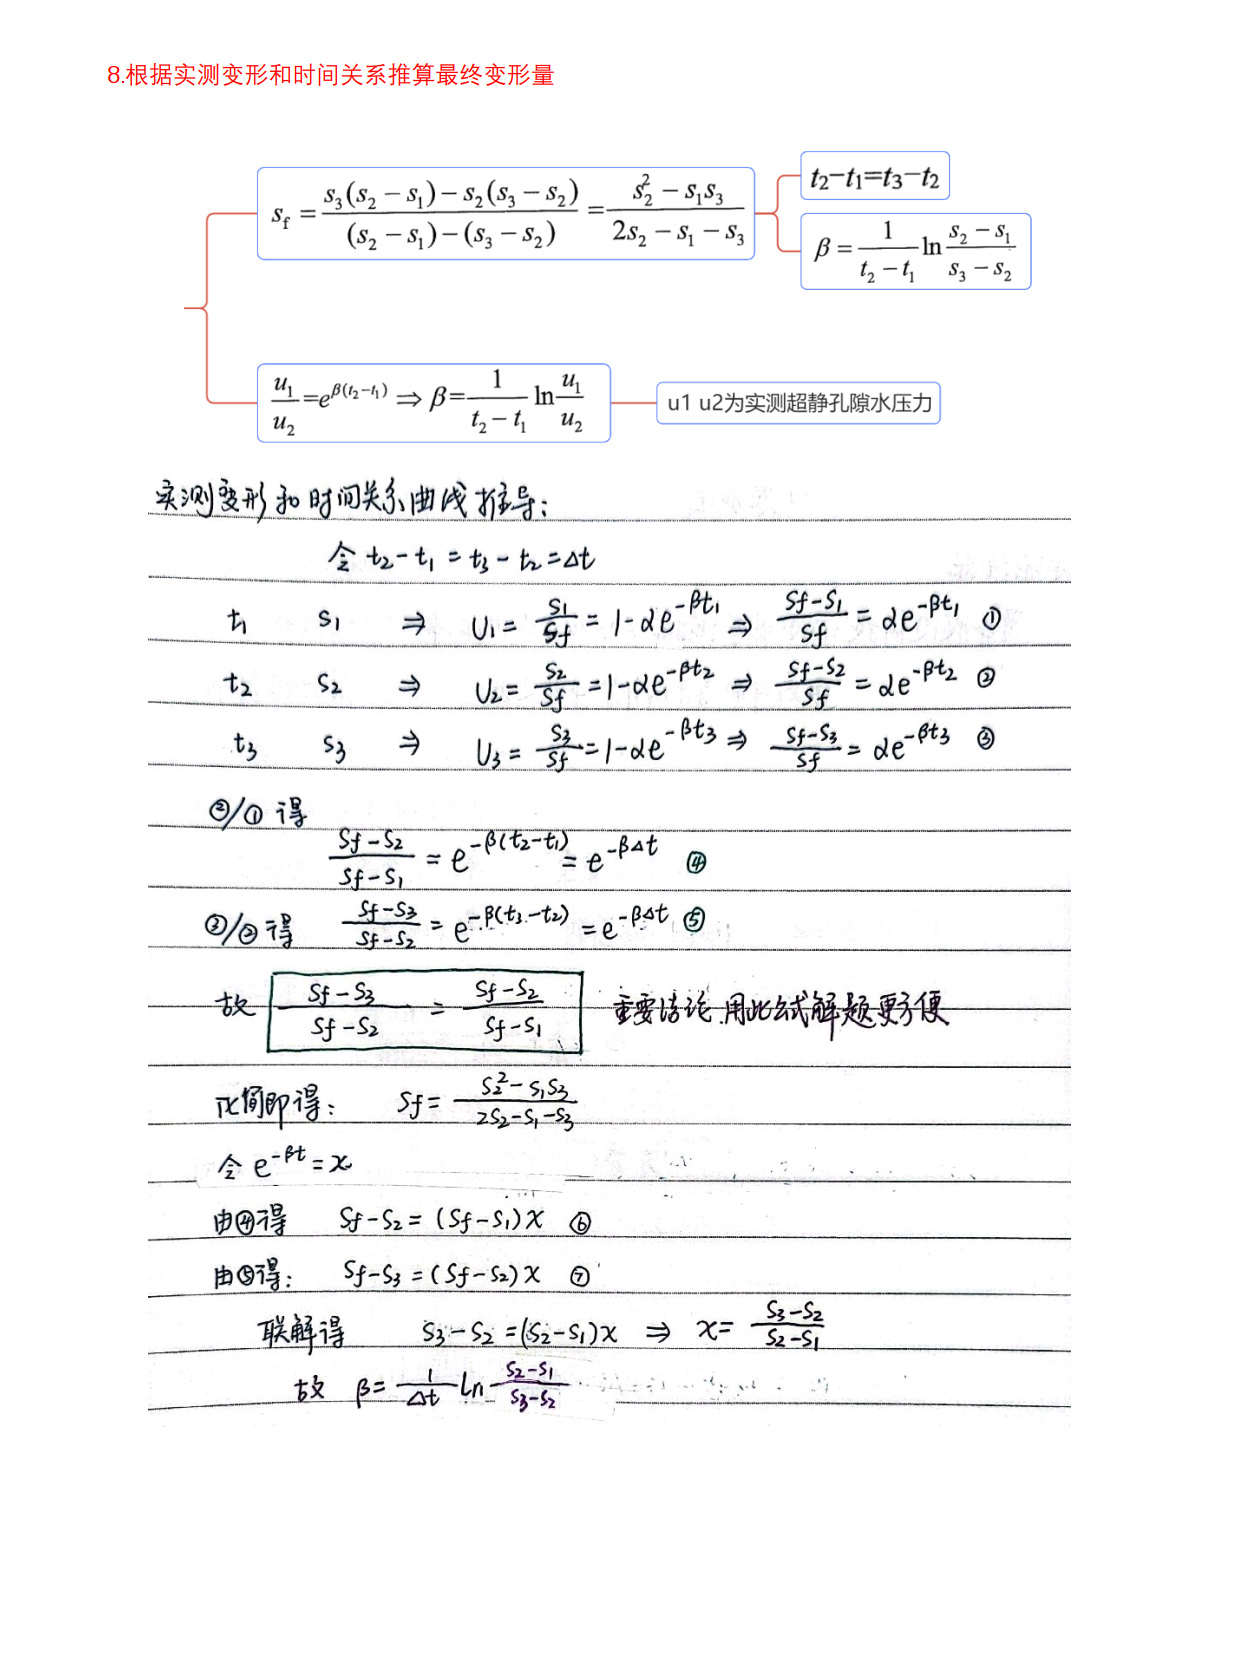 8.根据实测变形和时间关系推算最终变形量
s_f = \frac{s_3(s_2-s_1)-s_2(s_3-s_2)}{(s_2-s_1)-(s_3-s_2)} = \frac{s_2^2-s_1s_3}{2s_2-s_1-s_3}
t_2-t_1=t_3-t_2
β = \frac{1}{t_2-t_1} ln \frac{s_2-s_1}{s_3-s_2}
\frac{u_1}{u_2} = e^{β(t_2-t_1)} ⇒ β = \frac{1}{t_2-t_1} ln \frac{u_1}{u_2}
u1 u2为实测超静孔隙水压力
实测变形和时间关系曲线推导:
令 t_2-t_1 = t_3-t_2 = Δt
t_1 S_1 ⇒ U_1 = \frac{S_1}{S_f} = 1-αe^{-βt_1} ⇒ \frac{S_f-S_1}{S_f} = αe^{-βt_1} ①
t_2 S_2 ⇒ U_2 = \frac{S_2}{S_f} = 1-αe^{-βt_2} ⇒ \frac{S_f-S_2}{S_f} = αe^{-βt_2} ②
t_3 S_3 ⇒ U_3 = \frac{S_3}{S_f} = 1-αe^{-βt_3} ⇒ \frac{S_f-S_3}{S_f} = αe^{-βt_3} ③
②/① 得
\frac{S_f-S_2}{S_f-S_1} = e^{-β(t_2-t_1)} = e^{-βΔt} ④
③/②得 \frac{S_f-S_3}{S_f-S_2} = e^{-β(t_3-t_2)} = e^{-βΔt} ⑤
故 \frac{S_f-S_3}{S_f-S_2} = \frac{S_f-S_2}{S_f-S_1} 重要结论,用此公式解题更方便
化简即得: S_f = \frac{S_2^2-S_1S_3}{2S_2-S_1-S_3}
令 e^{-βt} = x
由④得 S_f-S_2 = (S_f-S_1)x ⑥
由⑤得: S_f-S_3 = (S_f-S_2)x ⑦
联解得 S_3-S_2 = (S_2-S_1)x ⇒ x = \frac{S_3-S_2}{S_2-S_1}
故 β = \frac{1}{Δt} ln \frac{S_2-S_1}{S_3-S_2}